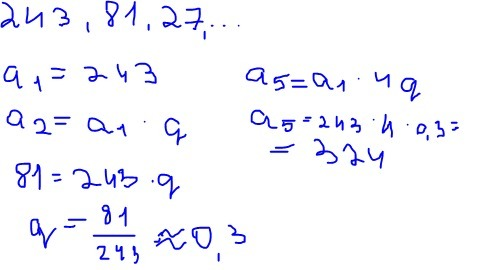 243, 81, 27, ...
a1 = 243
a2 = a1 · q
81 = 243 · q
q = 81/243 ≈ 0,3
a5 = a1 · 4q
a5 = 243 · 4 · 0,3 =
= 324